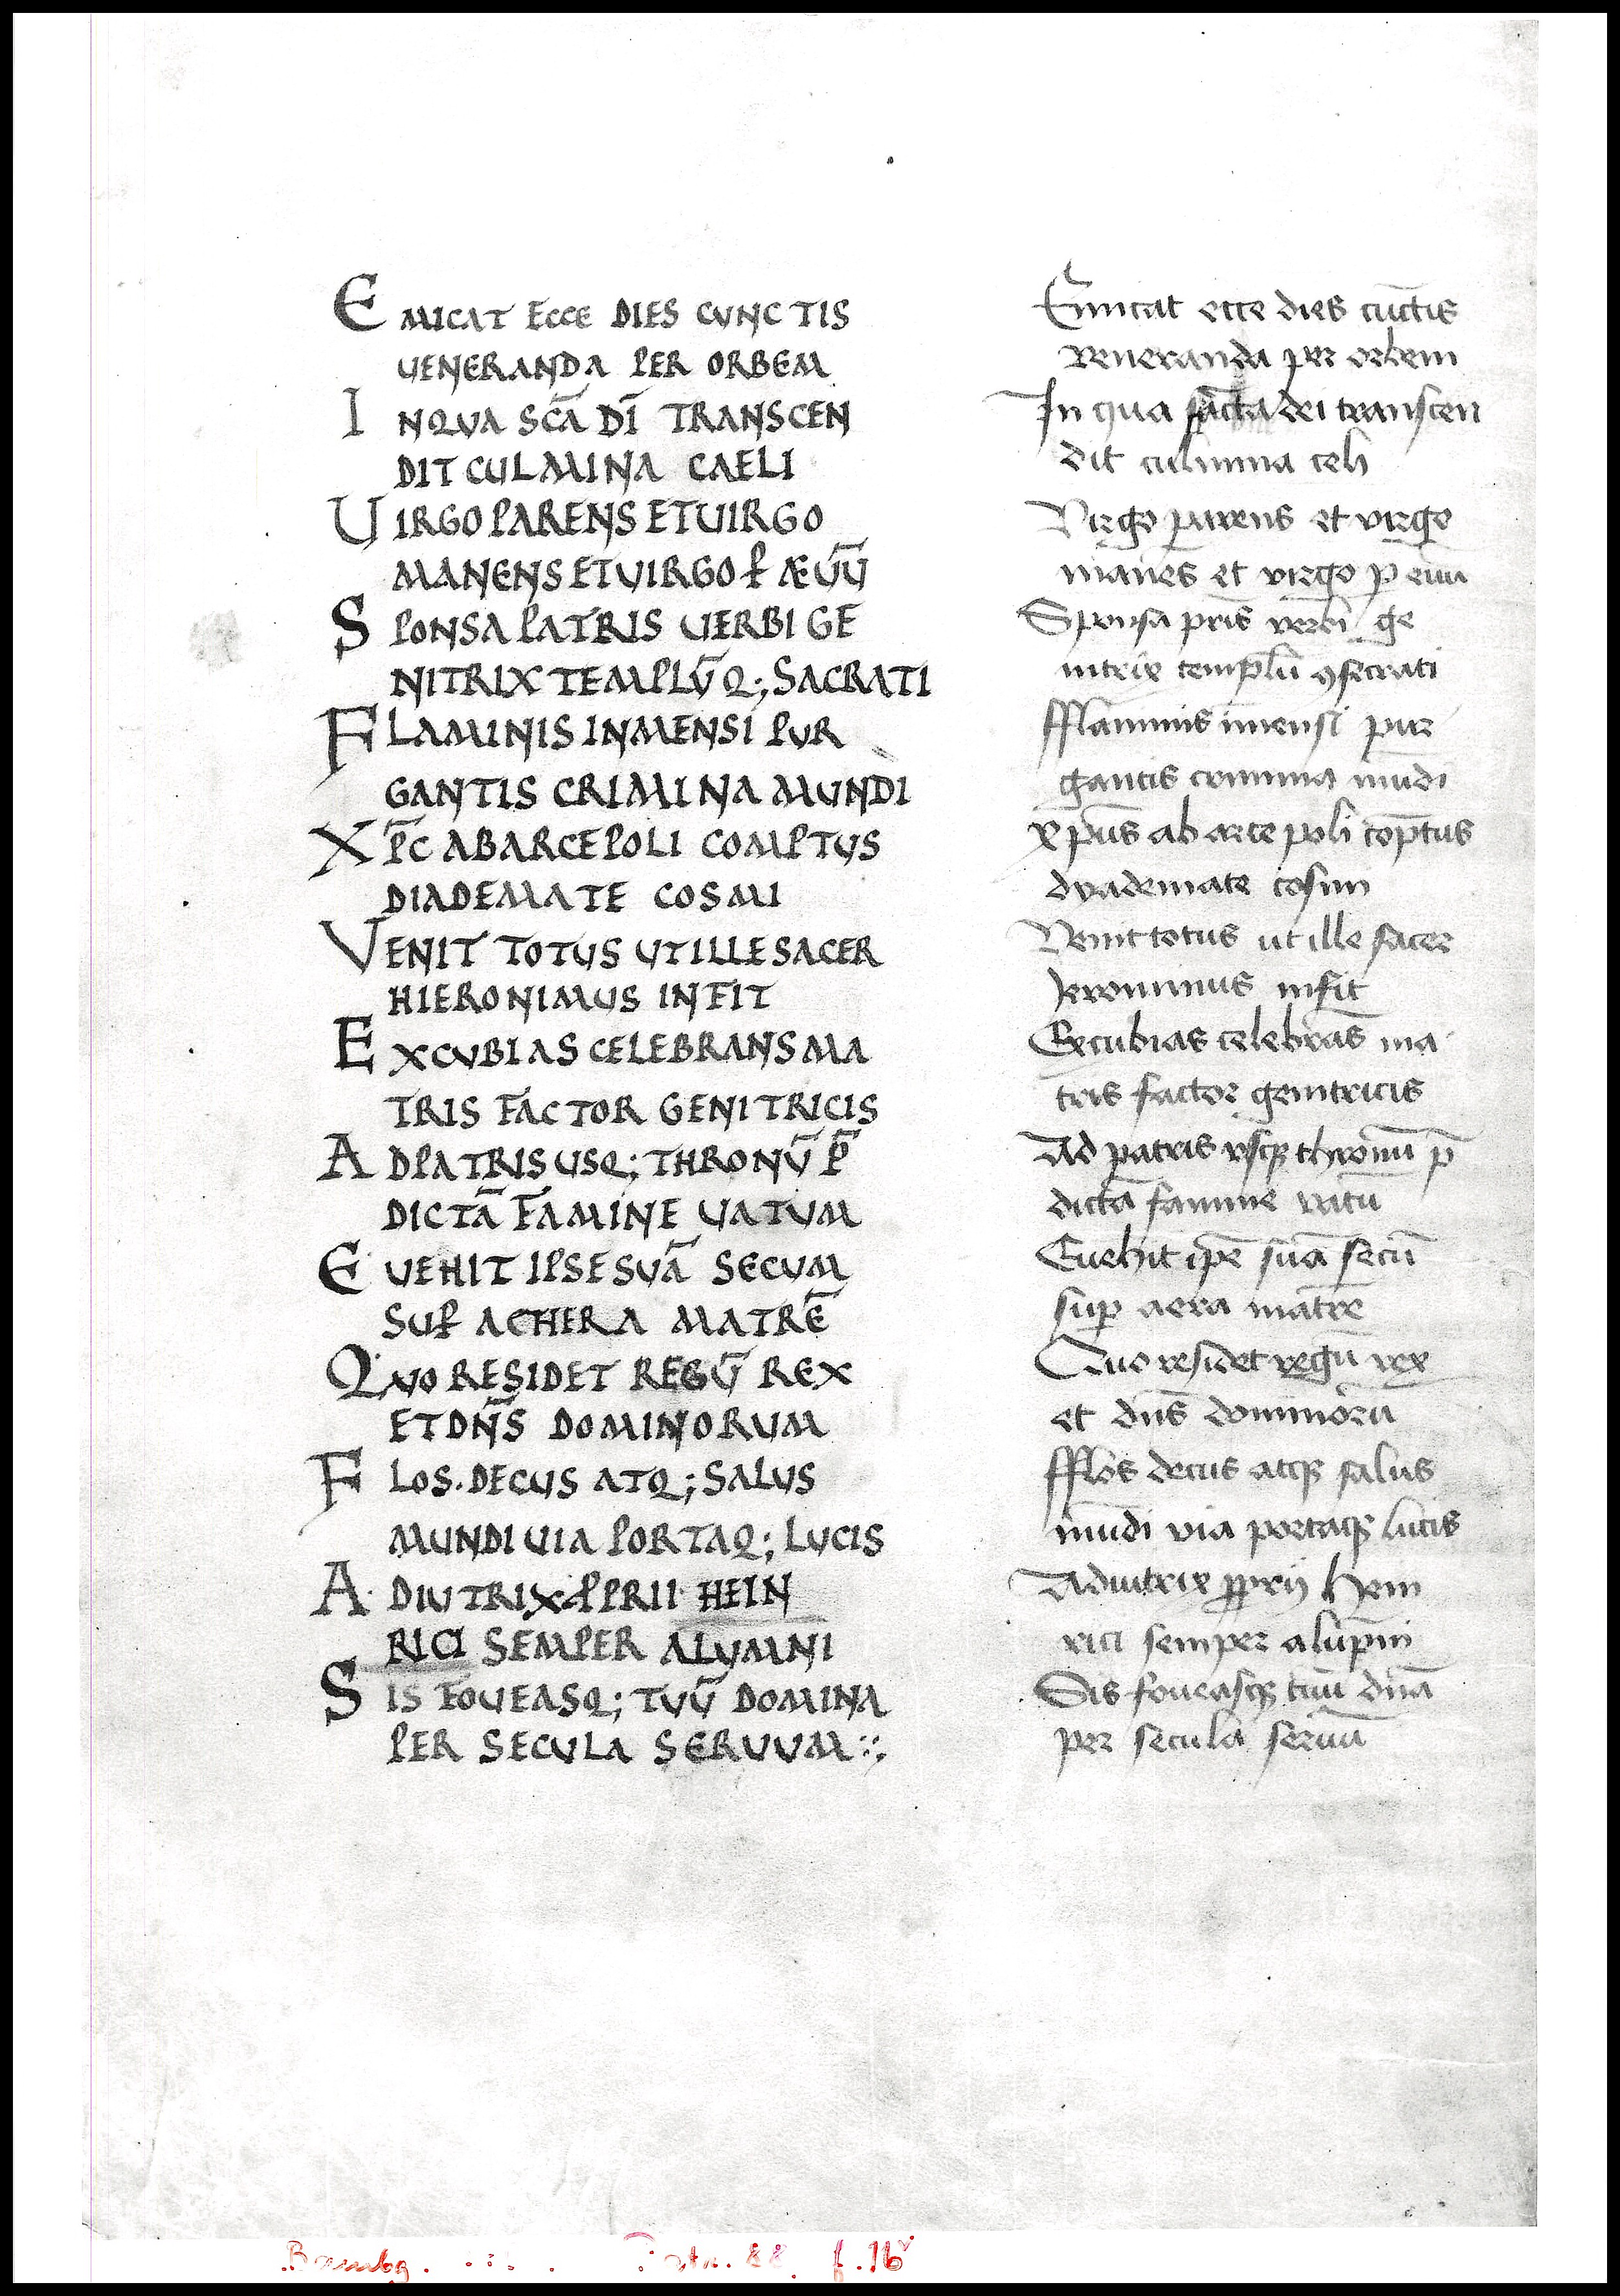 EMICAT ECCE DIES CUNCTIS
UENERANDA PER ORBEM
INQUA SCĀ DĪ TRANSCEN
DIT CULMINA CAELI
UIRGO PARENS ET UIRGO
MANENS ET UIRGO ꝑ ÆUŪ
SPONSA PATRIS UERBI GE
NITRIX TEMPLŪQ; SACRATI
FLAMINIS INMENSI PUR
GANTIS CRIMINA MUNDI
XP̄C AB ARCE POLI COMPTUS
DIADEMATE COSMI
VENIT TOTUS UT ILLE SACER
HIERONIMUS INFIT
EXCUBIAS CELEBRANS MA
TRIS FACTOR GENITRICIS
AD PATRIS USQ; THRONŪ P̄
DICTĀ FAMINE UATUM
EUEHIT IPSE SUĀ SECUM
SUꝑ AETHERA MATRĒ
QUO RESIDET REGŪ REX
ET DN̄S DOMINORUM
FLOS. DECUS ATQ; SALUS
MUNDI UIA PORTAQ; LUCIS
ADIUTRIX ꝓPRII HEIN
RICI SEMPER ALUMNI
SIS FOUEASQ; TUŪ DOMINA
PER SECULA SERUUM
Emicat ecce dies cūctis
veneranda per orbem
In qua sācta dei transcen
dit culmina celi
Virgo parens et virgo
manēs et virgo ꝑ euū
Sponsa pr̄is verbi ge
nitrix templū ꝯsecrati
fflaminis īmensi pur
gantis crimina mūdi
xp̄us ab arce poli cōptus
dyademate cosmi
Venit totus ut ille sacer
Jeronimus infit
Excubias celebrās ma
tris factor genitricis
Ad patris vsqꝫ thronū p̄
dictā famine vatū
Euehit ip̄e suā secū
suꝑ aera matrē
Quo residet regū rex
et dn̄s dominorū
fflos decus atqꝫ salus
mūdi via portaqꝫ lucis
Adiutrix ꝓprij Hein
rici semper alūpni
Sis foueasqꝫ tuū dn̄a
per secula seruū
Bambg. Patr. 88. f. 16v